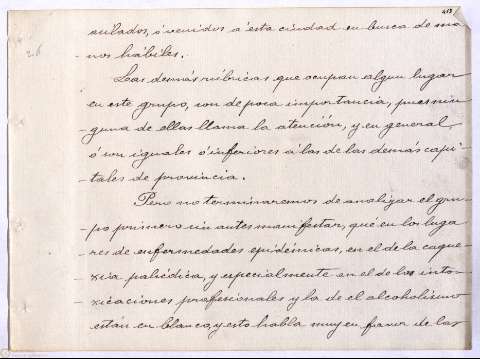 453
26
aislados, ó venidos á ésta ciudad en busca de ma-
-nos hábiles.
Las demás rúbricas que ocupan algun lugar
en este grupo, son de poca importancia, pues nin-
-guna de ellas llama la atención, y en general,
ó son iguales ó inferiores á las de las demás capi-
-tales de provincia.
Pero no terminaremos de analizar el gru-
-po primero sin antes manifestar, qué en los luga-
-res de enfermedades epidémicas, en el de la caque-
-xia palúdica, y especialmente en el de las into-
-xicaciones profesionales y la de el alcoholismo
están en blanco, y esto habla muy en favor de las